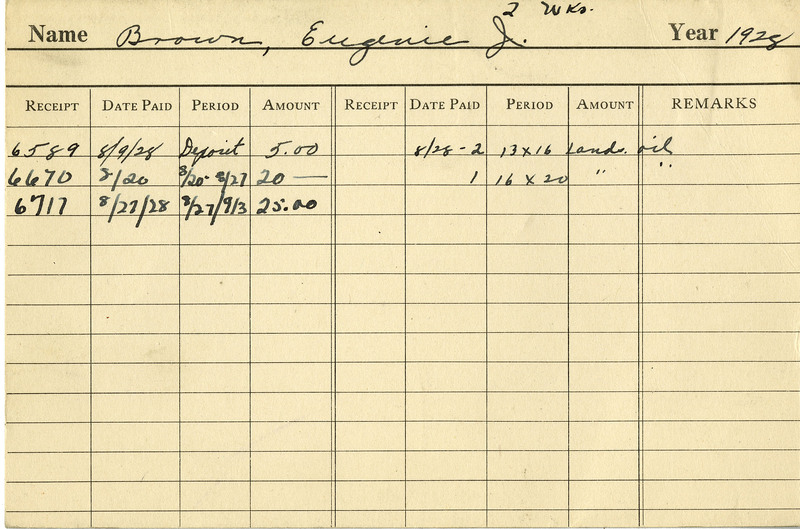 2 Wks.
Name Brown, Eugenie J. Year 1928
RECEIPT DATE PAID PERIOD AMOUNT RECEIPT DATE PAID PERIOD AMOUNT REMARKS
6589 8/9/28 Deposit 5.00 8/28-2 13x16 Lands. oil
6670 8/20 8/20-8/27 20 — 1 16 x 20 " "
6717 8/27/28 8/27/9/3 25.00